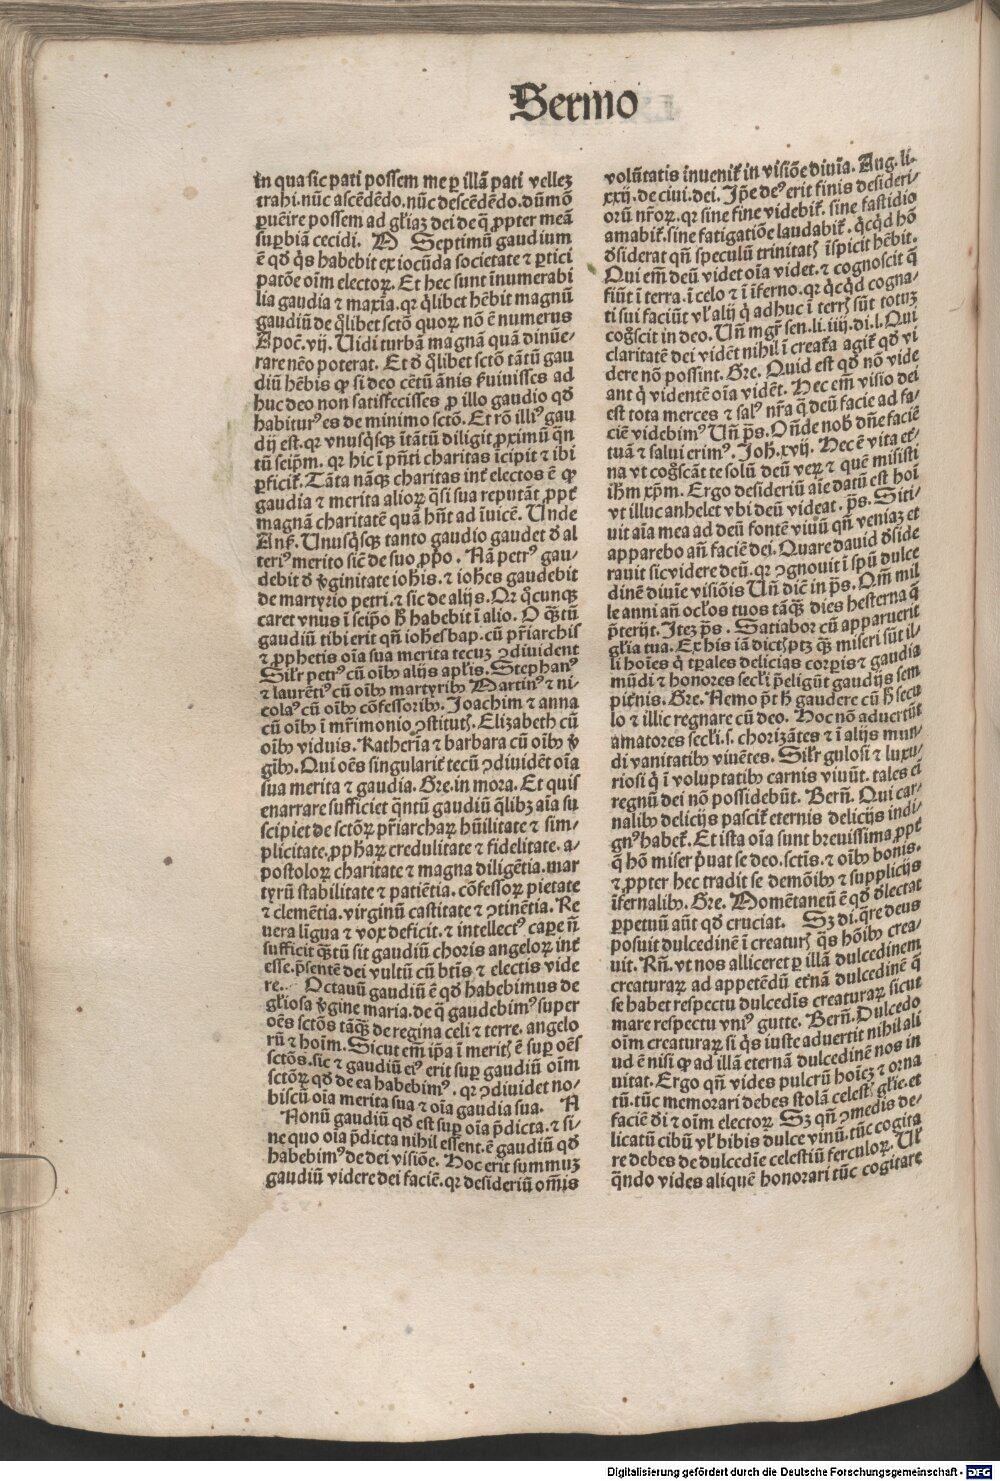 Sermo
in qua sic pati possem me ꝑ illā pati vellez
trahi. nūc ascēdēdo. nūc descēdēdo. dūmō
ꝑuēire possem ad gl̄iaꝫ dei de q̄ ꝓpter meā
suꝑbiā cecidi. Septimū gaudium
ē qd̄ q̇s habebit ex iocūda societate ⁊ ꝑtici
patōe oīm electoꝝ. Et hec sunt īnumerabi
lia gaudia ⁊ maxīa. qr q̇libet hēbit magnū
gaudiū de q̇libet sctō quoꝝ nō ē numerus
Apoc̄. vij. Uidi turbā magnā quā dinūe⸗
rare nēo poterat. Et đ q̇libet sctō tātū gau
diū hēbis ꝙ si deo cētū ānis ẜuiuisses ad
huc deo non satisfecisses ꝓ illo gaudio qđ
habiturꝰ es de minimo sctō. Et rō illiꝰ gau
dij est. qr vnusq̇sqꝫ ītātū diligit ꝓximū q̄n
tū seip̄m. qr hic ī pn̄ti charitas īcipit ⁊ ibi
ꝑficit̄. Tāta nāqꝫ charitas int̄ electos ē ꝙ
gaudia ⁊ merita alioꝝ q̄si sua reputāt ꝓpt̄
magnā charitatē quā hn̄t ad īuicē. Unde
Ans̄. Unusq̇sqꝫ tanto gaudio gaudet đ al
teriꝰ merito sic̄ de suo ꝓp̄o. Nā petrꝰ gau⸗
debit đ v̓ginitate ioh̄is. ⁊ ioh̄es gaudebit
de martyrio petri. ⁊ sic de alijs. Qr q̇cunqꝫ
caret vnus ī seip̄o h̄ habebit ī alio. O qꝫtū
gaudiū tibi erit qn̄ ioh̄es bap. cū pr̄iarchis
⁊ ꝓphetis oīa sua merita tecuꝫ ꝯdiuident
Sil̄r petrꝰ cū oībꝰ alijs apl̄is. Stephanꝰ
⁊ laurētiꝰ cū oībꝰ martyribꝰ Martinꝰ ⁊ ni⸗
colaꝰ cū oībꝰ cōfessoribꝰ. Joachim ⁊ anna
cū oībꝰ ī mr̄imonio ꝯstitutꝭ. Elizabeth cū
oībꝰ viduis. Katherīa ⁊ barbara cū oībꝰ v̓
gībꝰ. Qui oēs singularit̄ tecū ꝯdiuidēt oīa
sua merita ⁊ gaudia. Gre. in mora. Et quis
enarrare sufficiet q̄ntū gaudiū q̄libꝫ aīa su
scipiet de sctōꝝ pr̄iarchaꝝ hūilitate ⁊ sim⸗
plicitate. ꝓph̄aꝝ credulitate ⁊ fidelitate. a⸗
postoloꝝ charitate ⁊ magna diligētia. mar
tyrū stabilitate ⁊ patiētia. cōfessoꝝ pietate
⁊ clemētia. virginū castitate ⁊ ꝯtinētia. Re
vera līgua ⁊ vox deficit. ⁊ intellectꝰ caꝑe n̄
sufficit qꝫtū sit gaudiū choris angeloꝝ int̄
esse. p̄sentē dei vultū cū btīs ⁊ electis vide
re. Octauū gaudiū ē qđ habebimus de
gl̄iosa v̓gine maria. de q̄ gaudebimꝰ super
oēs sctōs tāqꝫ de regina celi ⁊ terre. angelo
rū ⁊ hoīm. Sicut em̄ ip̄a ī meritꝭ ē suꝑ oēs
sctōs. sic ⁊ gaudiū eiꝰ erit suꝑ gaudiū oīm
sctōꝝ qđ de ea habebimꝰ. qr ꝯdiuidet no⸗
biscū oīa merita sua ⁊ oīa gaudia sua.
Nonū gaudiū qđ est suꝑ oīa p̄dicta. ⁊ si⸗
ne quo oīa p̄dicta nihil essent. ē gaudiū qđ
habebimꝰ de dei visiōe. Hoc erit summuꝫ
gaudiū videre dei faciē. qr desideriū om̄is
volūtatis inuenit̄ in visiōe diuīa. Aug. li⸗
xxij. de ciui. dei. Ip̄e deꝰ erit finis desideri⸗
orū nr̄oꝝ. qr sine fine videbit̄. sine fastidio
amabit̄. sine fatigatiōe laudabit̄. q̇cq̇d hō
đsiderat qn̄ speculū trinitatꝭ īspicit hēbit.
Qui em̄ deū videt oīa videt. ⁊ cognoscit q̄
fiūt ī terra. ī celo ⁊ ī īferno. qr q̇cq̇d cogna⸗
ti sui faciūt vl̄ alij q̇ adhuc ī terrꝭ sūt totuꝫ
coḡscit in deo. Un̄ mgr̄ sen. li. iiij. di. l. Qui
claritatē dei vidēt nihil ī creat̄a agit̄ qđ vi
dere nō possint. Gre. Quid est qđ nō vide
ant q̇ videntē oīa vidēt. Hec em̄ visio dei
est tota merces ⁊ salꝰ nr̄a q̄ deū facie ad fa⸗
ciē videbimꝰ Un̄ ps̄. On̄de nob̄ dn̄e faciē
tuā ⁊ salui erimꝰ. Joh̄. xvij. Hec ē vita et̄⸗
na vt coḡscāt te solū deū veꝝ ⁊ quē misisti
ih̄m xp̄m. Ergo desideriū aīe datū est hoī
vt illuc anhelet vbi deū videat. ps̄. Siti⸗
uit aīa mea ad deū fontē viuū qn̄ veniaꝫ et
apparebo an̄ faciē dei. Quare dauid đside
rauit sic videre deū. qr ꝯgnouit ī spū dulce
dinē diuīe visiōis Un̄ dic̄ in ps̄. Qm̄ mil
le anni an̄ ocl̄os tuos tāqꝫ dies hesterna q̄
p̄terijt. Iteꝫ ps̄. Satiabor cū apparuerit
gl̄ia tua. Ex his iā dictꝭ ptꝫ qꝫ miseri sūt il⸗
li hoīes q̇ tꝑales delicias corꝑis ⁊ gaudia
mūdi ⁊ honores secl̄i p̄eligūt gaudijs sem
pit̄nis. Gre. Nemo p̄t h̄ gaudere cū h̄ secu
lo ⁊ illic regnare cū deo. Hoc nō aduertūt
amatores secl̄i. s. chorizātes ⁊ ī alijs mun⸗
di vanitatibꝰ viuētes. Sil̄r gulosi ⁊ luxu⸗
riosi q̇ ī voluptatibꝰ carnis viuūt. tales em̄
regnū dei nō possidebūt. Bern̄. Qui car⸗
nalibꝰ delicijs pascit̄ eternis delicijs indi⸗
gnꝰ habet̄. Et ista oīa sunt breuissima ꝓpt̄
q̄ hō miser p̄uat se deo. sctīs. ⁊ oībꝰ bonis.
⁊ ꝓpter hec tradit se demōibꝰ ⁊ supplicijs
īfernalibꝰ. Gre. Momētaneū ē qđ đlectat
ꝑpetuū aūt qđ cruciat. Sꝫ di. q̄re deus
posuit dulcedinē ī creaturꝭ q̄s hōibꝰ crea⸗
uit. Rn̄. vt nos alliceret ꝑ illā dulcedinem
creaturaꝝ ad appetēdū et̄nā dulcedinē q̄
se habet respectu dulcedīs creaturaꝝ sicut
mare respectu vniꝰ gutte. Bern̄. Dulcedo
oīm creaturaꝝ si q̇s iuste aduertit nihil ali
ud ē nisi ꝙ ad illā eternā dulcedinē nos in
uitat. Ergo qn̄ vides pulcrū hoīeꝫ ⁊ orna
tū. tūc memorari debes stolā celestꝭ gl̄ie. et
faciē đi ⁊ oīm electoꝝ. Sꝫ qn̄ ꝯmedis de⸗
licatū cibū vl̄ bibis dulce vinū. tūc cogita
re debes de dulcedīe celestiū ferculoꝝ. Ul̄
q̄ndo vides aliquē honorari tūc cogitare
Digitalisierung gefördert durch die Deutsche Forschungsgemeinschaft - DFG